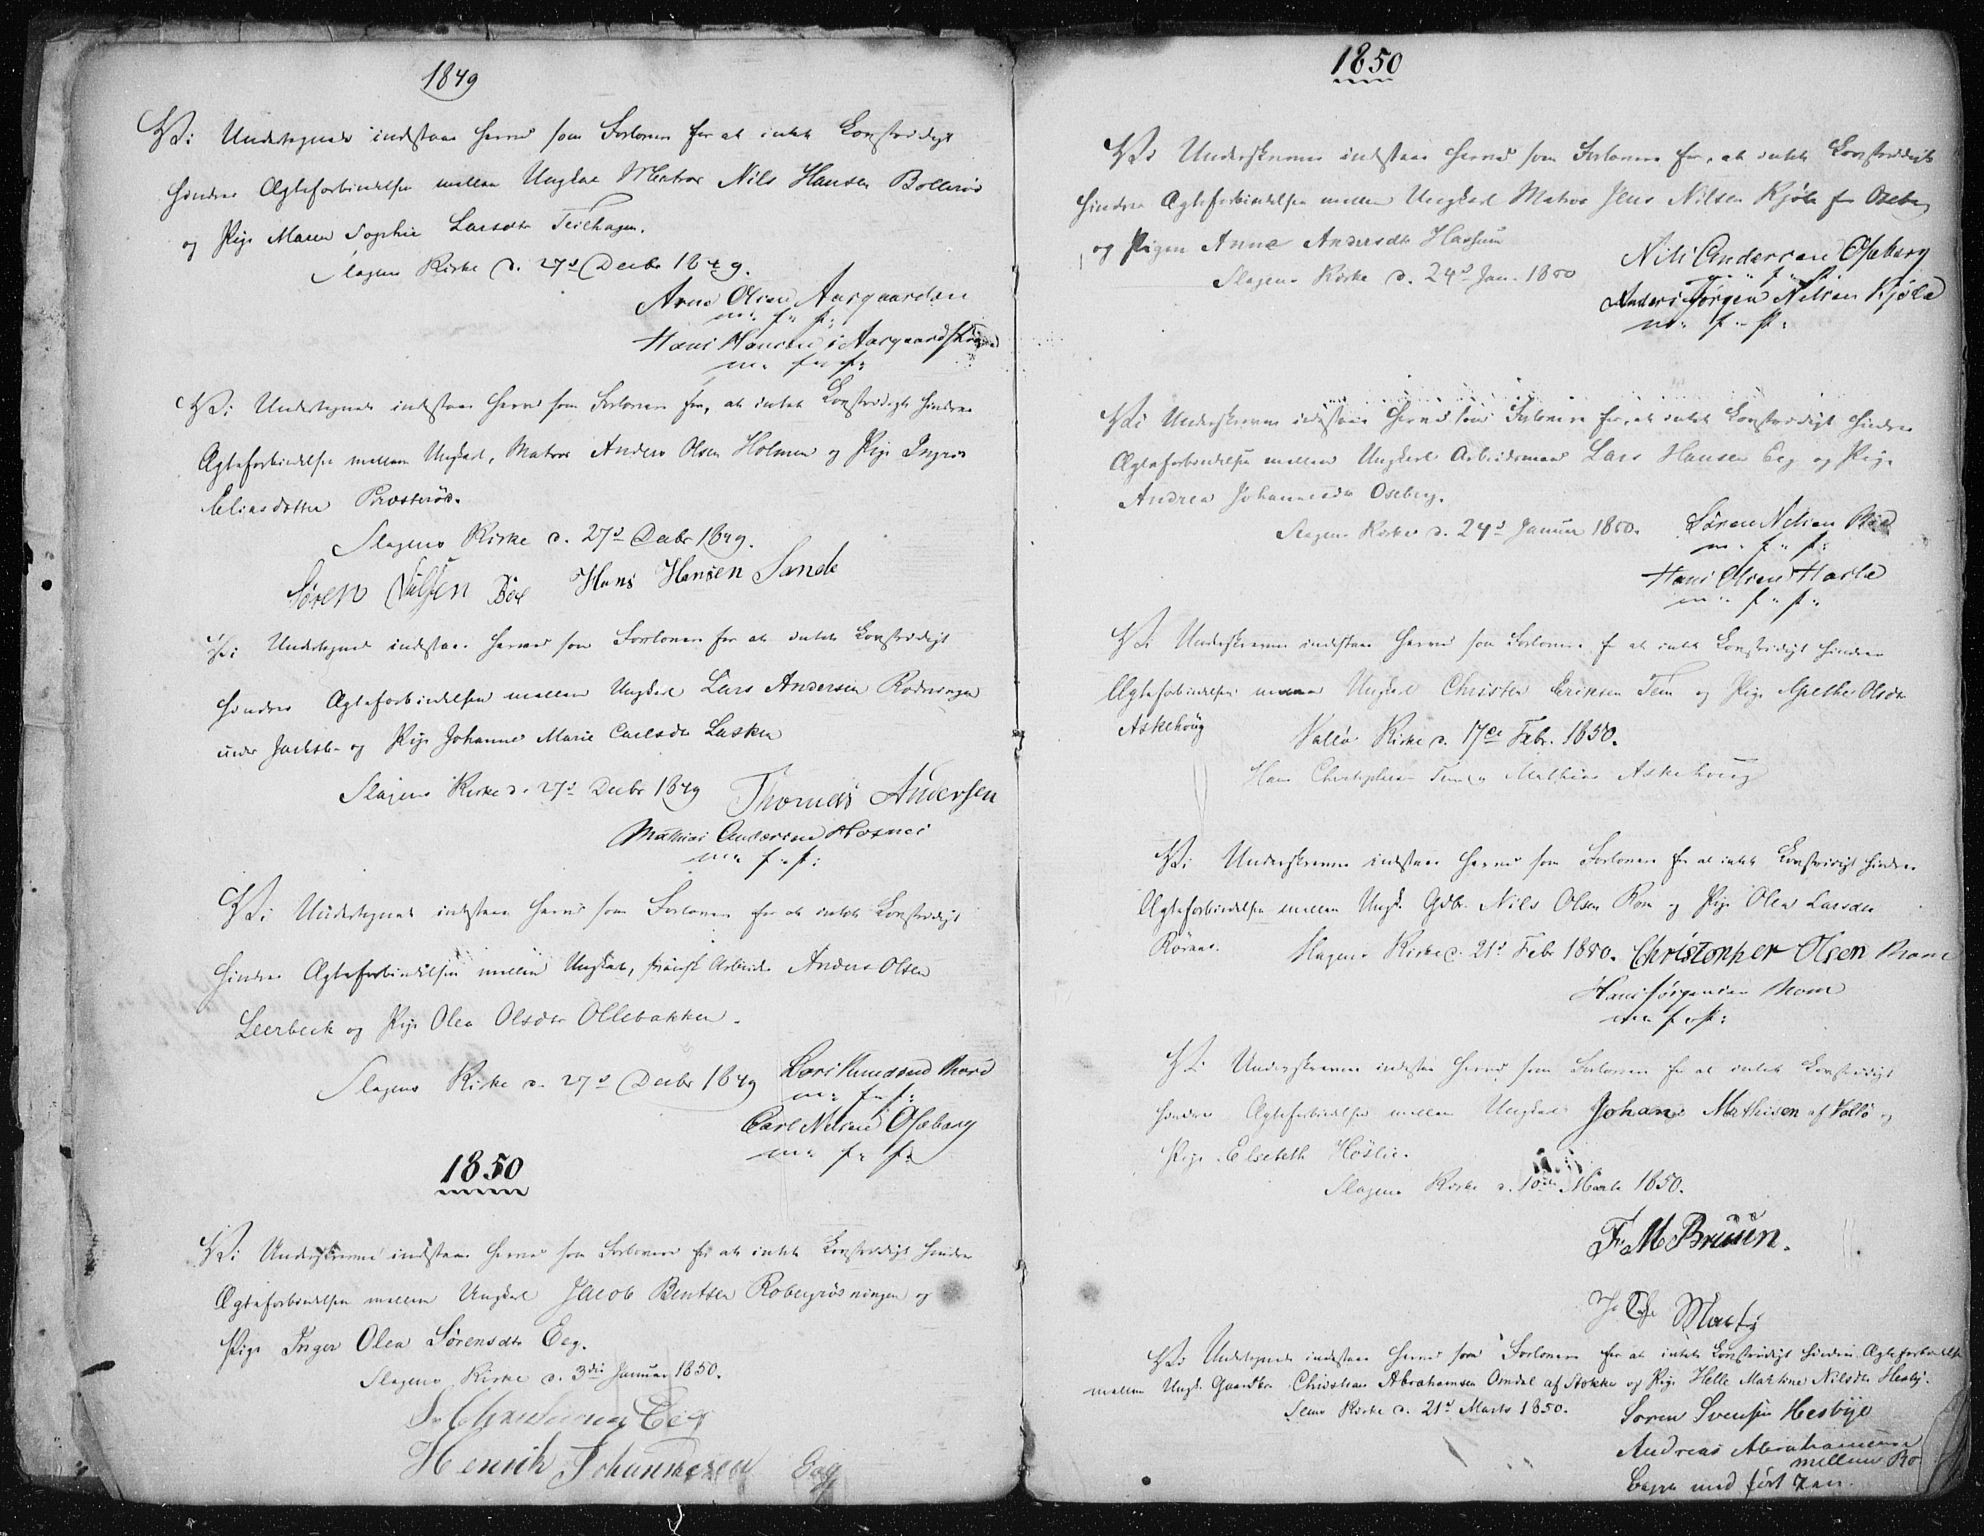 1849
Vi Undertegnede indstaae herved som Forlovere for at intet Lovstridigt
hindrer Ægteforbindelsen mellem Ungkarl Matros Nils Hansen Bollerød
og Pige Maren Sophie Larsdtr Teilhagen.
Slagens Kirke d. 27d Decbr 1849.
Arne Olsen Aasgaarden
m: f: p:
Hans Hansen i Aasgaards
m: f: p:
Vi Undertegnede indstaae herved som Forlovere for, at intet Lovstridigt hindrer
Ægteforbindelsen mellem Ungkarl, Matros Anders Olsen Holmen og Pige Ingrid
Eliasdatter Præsterød.
Slagens Kirke d. 27d Decbr 1849.
Søren Nilsen Bøe Hans Hansen Sande
Vi Undertegnede indstaae herved som Forlovere for at intet Lovstridigt
hindrer Ægteforbindelsen mellem Ungkarl Lars Andersen Rødningen
under og Pige Johanne Marie Carlsdtr Lasken
Slagens Kirke d. 27d Decbr 1849 Thomas Andersen
Mathias Andersen Hosnes
m: f: p:
Vi Undertegnede indstaae herved som Forlovere for at intet Lovstridigt
hindrer Ægteforbindelsen mellem Ungkarl, Arbeider Anders Olsen
Leerbeck og Pige Olea Olsdtr Ollebakken.
Slagens Kirke d. 27d Decbr 1849 Lars Knudsend
m: f: p:
Carl Nilsen Oseberg
m: f: p:
1850
Vi Underskrevne indstaae herved som Forlovere for at intet Lovstridigt hindrer
Ægteforbindelsen mellem Ungkarl Jacob Bentsen Robergrødningen og
Pige Inger Olea Sørensdtr Eeg.
Slagens Kirke d. 3die Januar 1850.
Eeg
Henrik Johannesen Eeg
1850
Vi Underskrevne indstaae herved som Forlovere for, at intet Lovstridigt
hindrer Ægteforbindelsen mellem Ungkarl Matros Jens Nilsen Kjøle fra Oseberg
og Pigen Anne Andersdtr Hassum
Slagens Kirke d. 24d Jan. 1850
Nils Andersen Oseberg
m: f: p:
Anders Jørgen Nilsen Kjøle
m: f: p:
Vi Underskrevne indstaae herved som Forlovere for, at intet Lovstridigt hindrer
Ægteforbindelsen mellem Ungkarl Arbeidsmand Lars Hansen Eeg og Pige
Andrea Johannesdtr Oseberg.
Slagens Kirke d. 24d Januar 1850.
Søren Nilsen Bøe
m: f: p:
Hans Olsen Hasle
m: f: p:
Vi Underskrevne indstaae herved som Forlovere for at intet Lovstridigt hindrer
Ægteforbindelsen mellem Ungkarl Christen Eriksen Tem og Pige Grethe Olsdtr
Askehoug
Valløe Kirke d. 17de Febr. 1850.
Hans Christophersen Mathias Askehoug
Vi Underskrevne indstaae herved som Forlovere for at intet Lovstridigt hindrer
Ægteforbindelsen mellem Ungk. Gdbr. Nils Olsen Rom og Pige Olea Larsdtr
Røraas.
Slagens Kirke d. 21d Febr 1850. Christopher Olsen Rom
Hans Jørgensen Rom
m: f: p:
Vi Underskrevne indstaae herved som Forlovere for at intet Lovstridigt
hindrer Ægteforbindelsen mellem Ungkarl Johan Mathisen af Vallø og
Pige Elsebeth Høslie.
Slagens Kirke d. 10de Marts 1850.
Fr. M Bruun.
Vi Undertegnede indstaae herved som Forlovere for at intet Lovstridigt hindrer Ægteforbindelse
mellem Ungk. Gaardbr. Christian Abrahamsen Omdal af Stokke og Pige Helle Martine Nilsdtr Hesby.
Sems Kirke d. 21d Marts 1850.
Soren Svensen Hesbye
Andreas Abrahamsen
mellem Bo
med ført Pen.